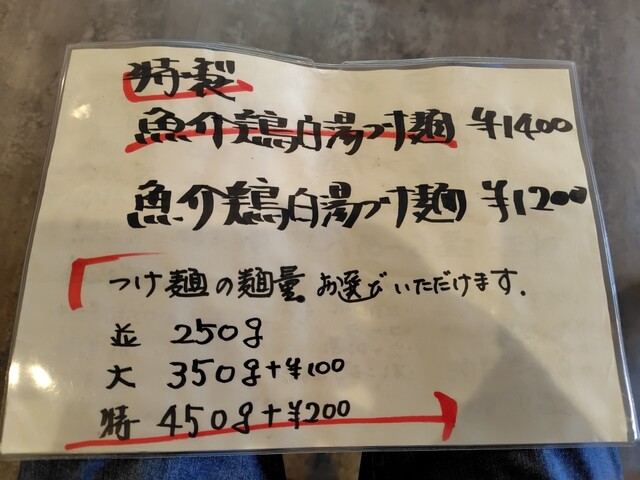 特製
魚介鶏白湯つけ麺 ¥1400
魚介鶏白湯つけ麺 ¥1200
つけ麺の麺量お選びいただけます.
並 250g
大 350g+¥100
特 450g+¥200